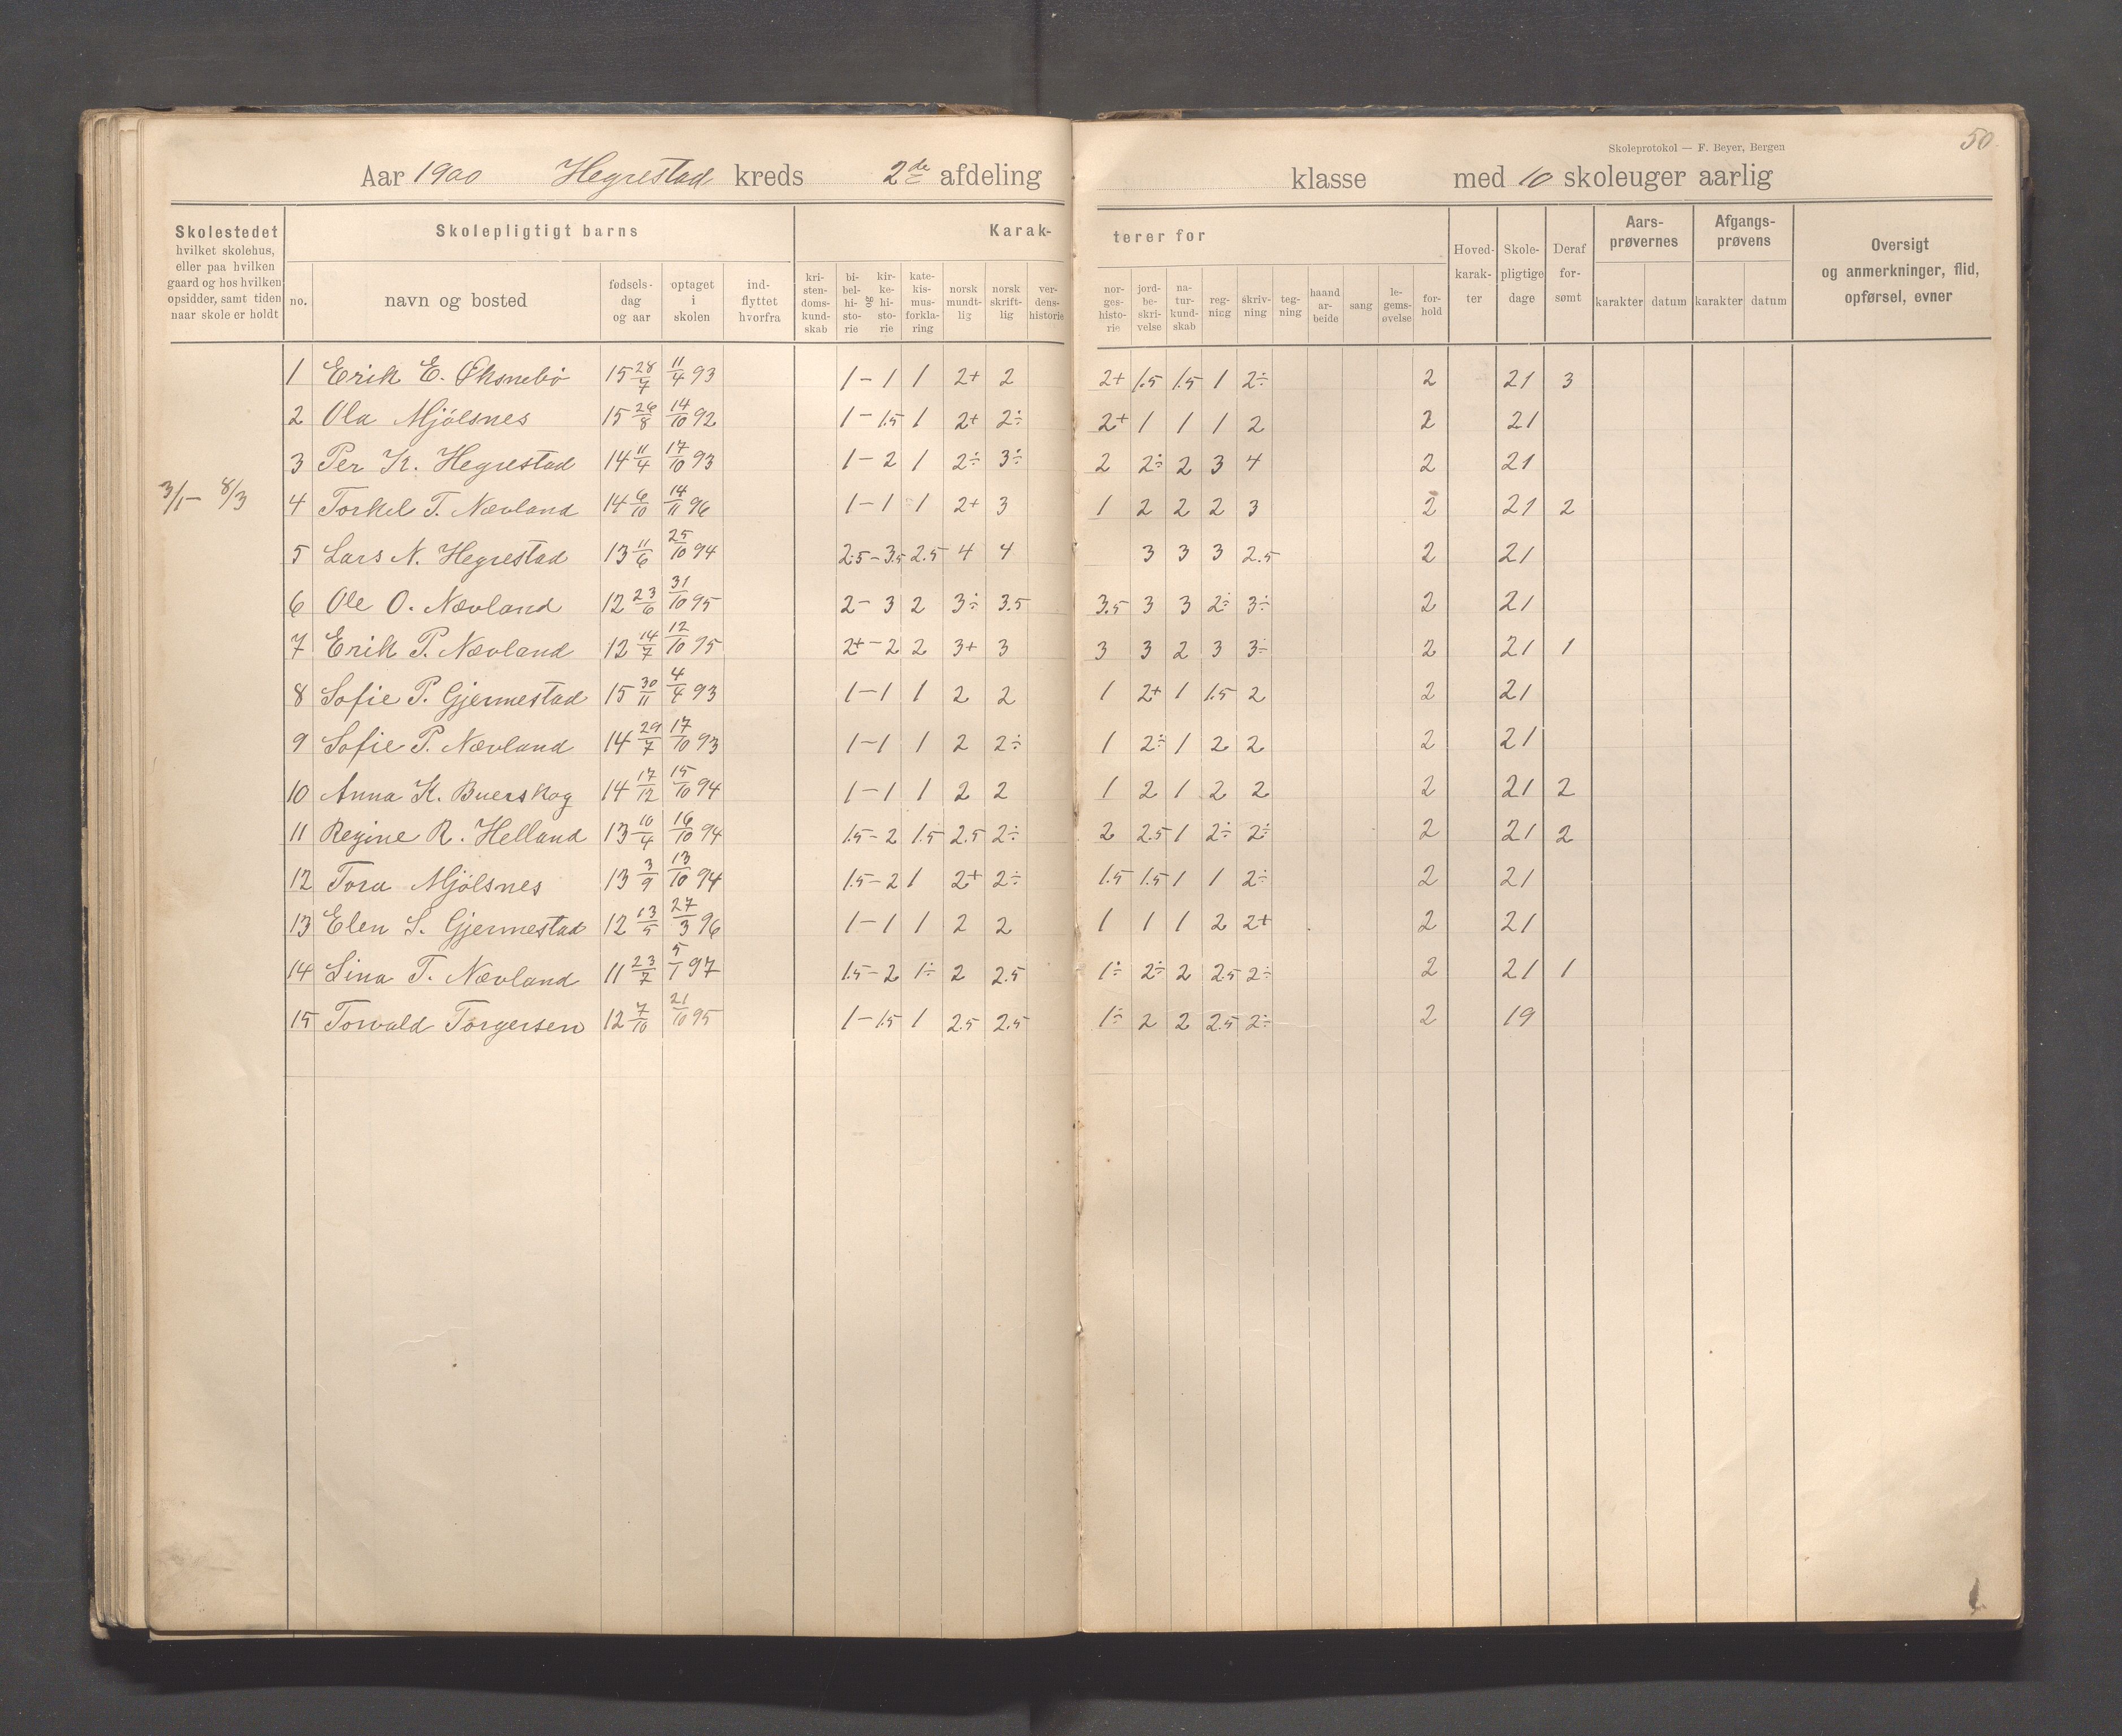 50
Skoleprotokol — F. Beyer, Bergen
Aar 1900 Hegrestad kreds 2de afdeling klasse med 10 skoleuger aarlig
Skolestedet hvilket skolehus, eller paa hvilken gaard og hos hvilken opsidder, samt tiden naar skole er holdt
Skolepligtigt barns
Karakterer for
no. navn og bosted fødselsdag og aar optaget i skolen indflyttet hvorfra kristendomskundskab bibelhistorie og kirkehistorie katekismusforklaring norsk mundtlig norsk skriftlig verdenshistorie norgeshistorie jordbeskrivelse naturkundskab regning skrivning tegning haandarbeide sang legemsøvelse forhold
Hovedkarakter Skolepligtige dage Deraf forsømt
Aarsprøvernes karakter datum
Afgangsprøvens karakter datum
Oversigt og anmerkninger, flid, opførsel, evner
3/1 – 8/3
1 Erik E. Øksnebø 15 28/7 11/4 93 1 – 1 1 2+ 2 2+ 1.5 1.5 1 2÷ 2 21 3
2 Ola Mjölsnes 15 26/8 14/10 92 1 – 1.5 1 2+ 2÷ 2+ 1 1 1 2 2 21
3 Per K. Hegrestad 14 11/4 17/10 93 1 – 2 1 2÷ 3÷ 2 2÷ 2 3 4 2 21
4 Torkel T. Nævland 14 6/10 14/11 96 1 – 1 1 2+ 3 1 2 2 2 3 2 21 2
5 Lars N. Hegrestad 13 11/6 25/10 94 2.5 – 3.5 2.5 4 4 3 3 3 2.5 2 21
6 Ole O. Nævland 12 23/6 31/10 95 2 – 3 2 3÷ 3.5 3.5 3 3 2÷ 3÷ 2 21
7 Erik P. Nævland 12 14/7 12/10 95 2+ – 2 2 3+ 3 3 3 2 3 3÷ 2 21 1
8 Sofie P. Gjermestad 15 30/11 4/4 93 1 – 1 1 2 2 1 2+ 1 1.5 2 2 21
9 Sofie P. Nævland 14 29/7 17/10 93 1 – 1 1 2 2÷ 1 2÷ 1 2 2 2 21
10 Anna K. Buerskog 14 17/12 15/10 94 1 – 1 1 2 2 1 2 1 2 2 2 21 2
11 Regine R. Helland 13 10/4 16/10 94 1.5 – 2 1.5 2.5 2÷ 2 2.5 1 2÷ 2÷ 2 21 2
12 Tora Mjölsnes 13 3/9 13/10 94 1.5 – 2 1 2+ 2÷ 1.5 1.5 1 1 2÷ 2 21
13 Elen S. Gjermestad 12 13/5 27/3 96 1 – 1 1 2 2 1 1 1 2 2+ 2 21
14 Lina T. Nævland 11 23/7 5/1 97 1.5 – 2 1÷ 2 2.5 1÷ 2÷ 2 2.5 2÷ 2 21 1
15 Torvald Torgersen 12 7/10 21/10 95 1 – 1.5 1 2.5 2.5 1÷ 2 2 2.5 2÷ 2 19